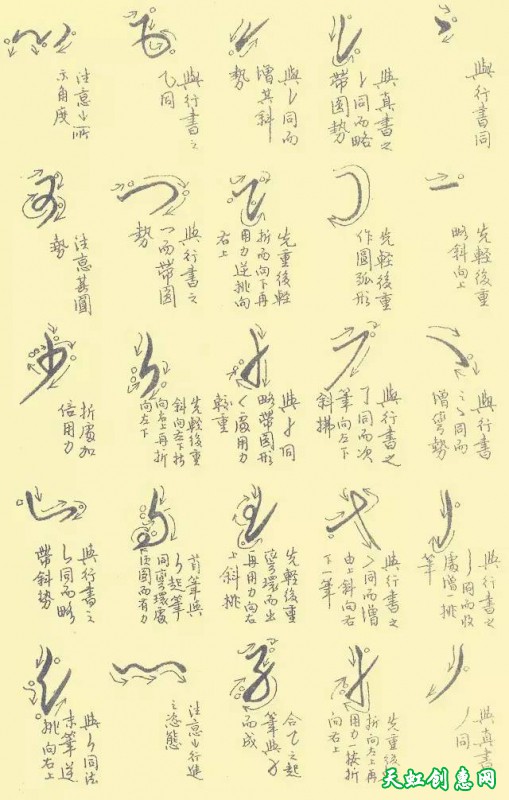 與行書同
與真書之
㇙同而略
帶圓勢
與㇙同而
增其斜
勢
與行書之
乙同
注意中所
示角度
先輕後重
略斜向上
先輕後重
作圓弧形
先重後輕
折而向下再
用力逆挑向
右上
與行書之
乛而帶圓
勢
注意其圓
勢
與行書
之㇔同而
增彎勢
與行書之
了同而次
筆向左下
斜拂
略帶圓形
處用力
較重
先輕後重
斜向左下折
向右上再折
向左下
折處加
倍用力
與行書之
亅同而收
處增一挑
筆
與行書之
同而增
由上斜向右
下一筆
先輕後重
彎環而出
再用力向右
上斜挑
首筆與
起筆
同彎環處
須圓而有力
與行書之
㇙同而略
帶斜勢
與真書
丿同
先重後輕
折向左上再
用力一按折
向右上
合乙之起
筆與
而成
注意中行進
之姿態
同法
末筆逆
挑向右上
天虹创惠网